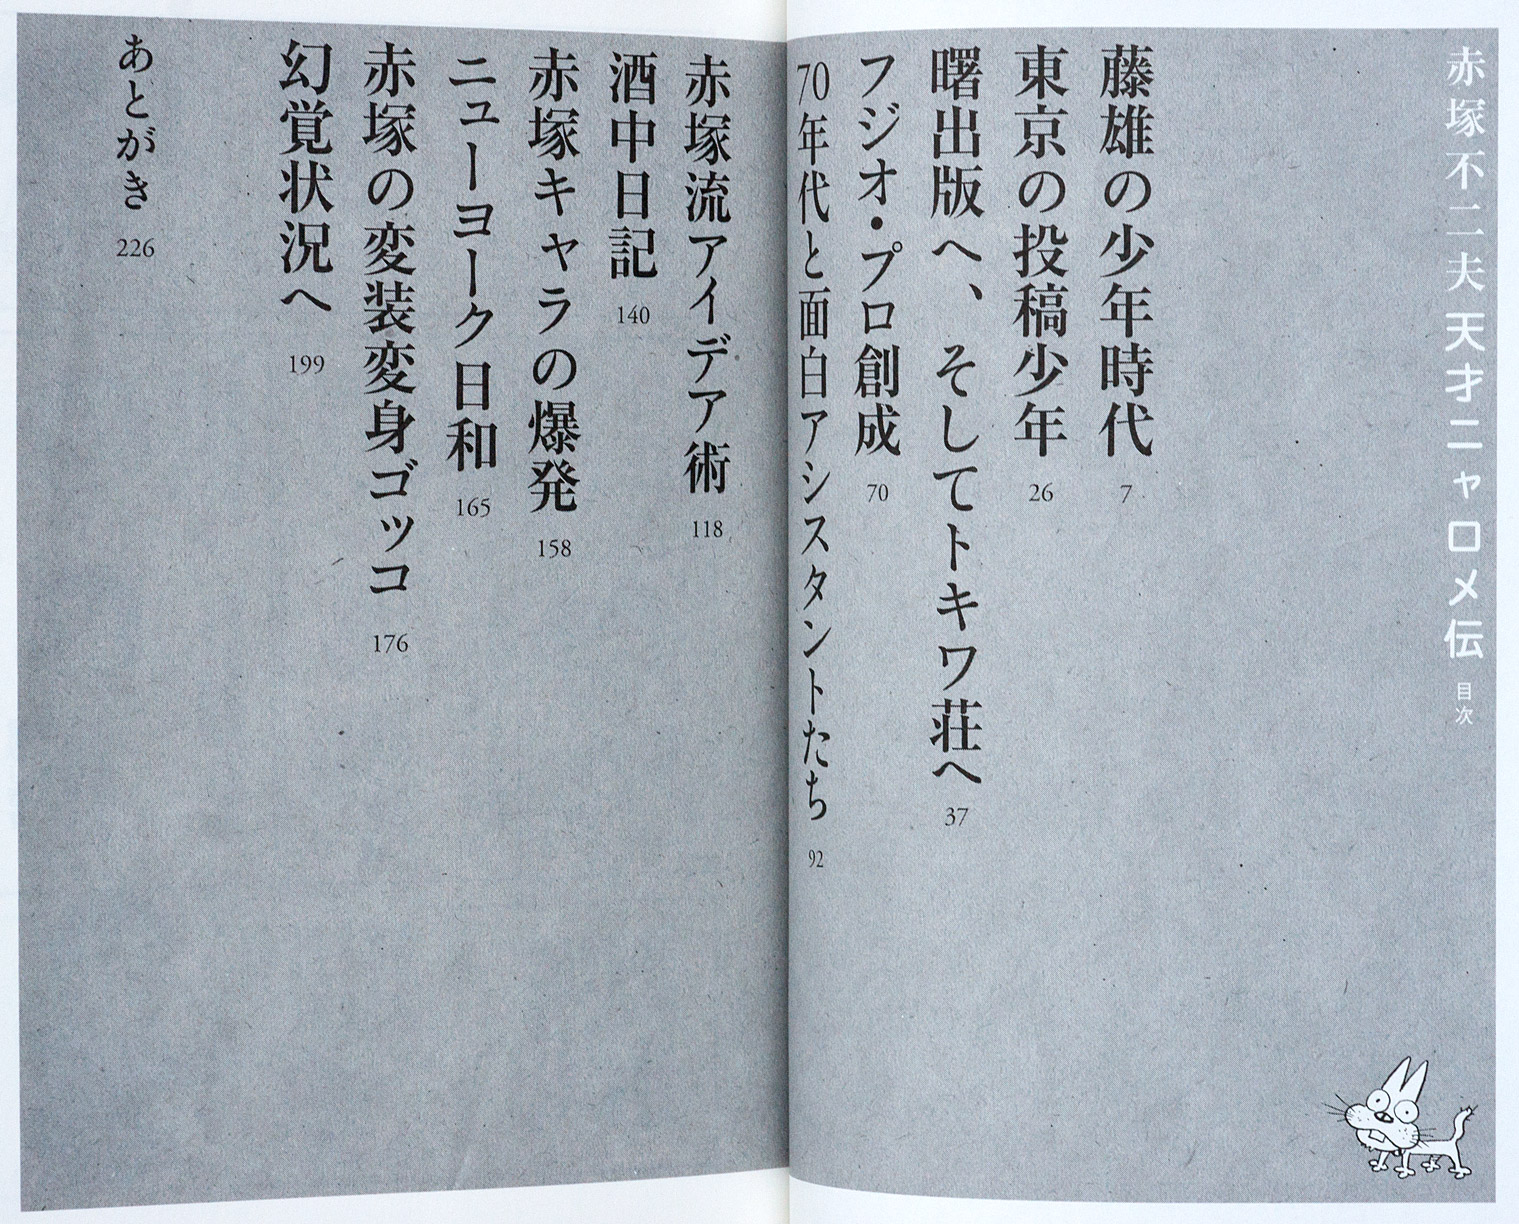 赤塚不二夫 天才ニャロメ伝 目次
藤雄の少年時代 7
東京の投稿少年 26
曙出版へ、そしてトキワ荘へ 37
フジオ・プロ創成 70
70年代と面白アシスタントたち 92
赤塚流アイデア術 118
酒中日記 140
赤塚キャラの爆発 158
ニューヨーク日和 165
赤塚の変装変身ゴッコ 176
幻覚状況へ 199
あとがき 226